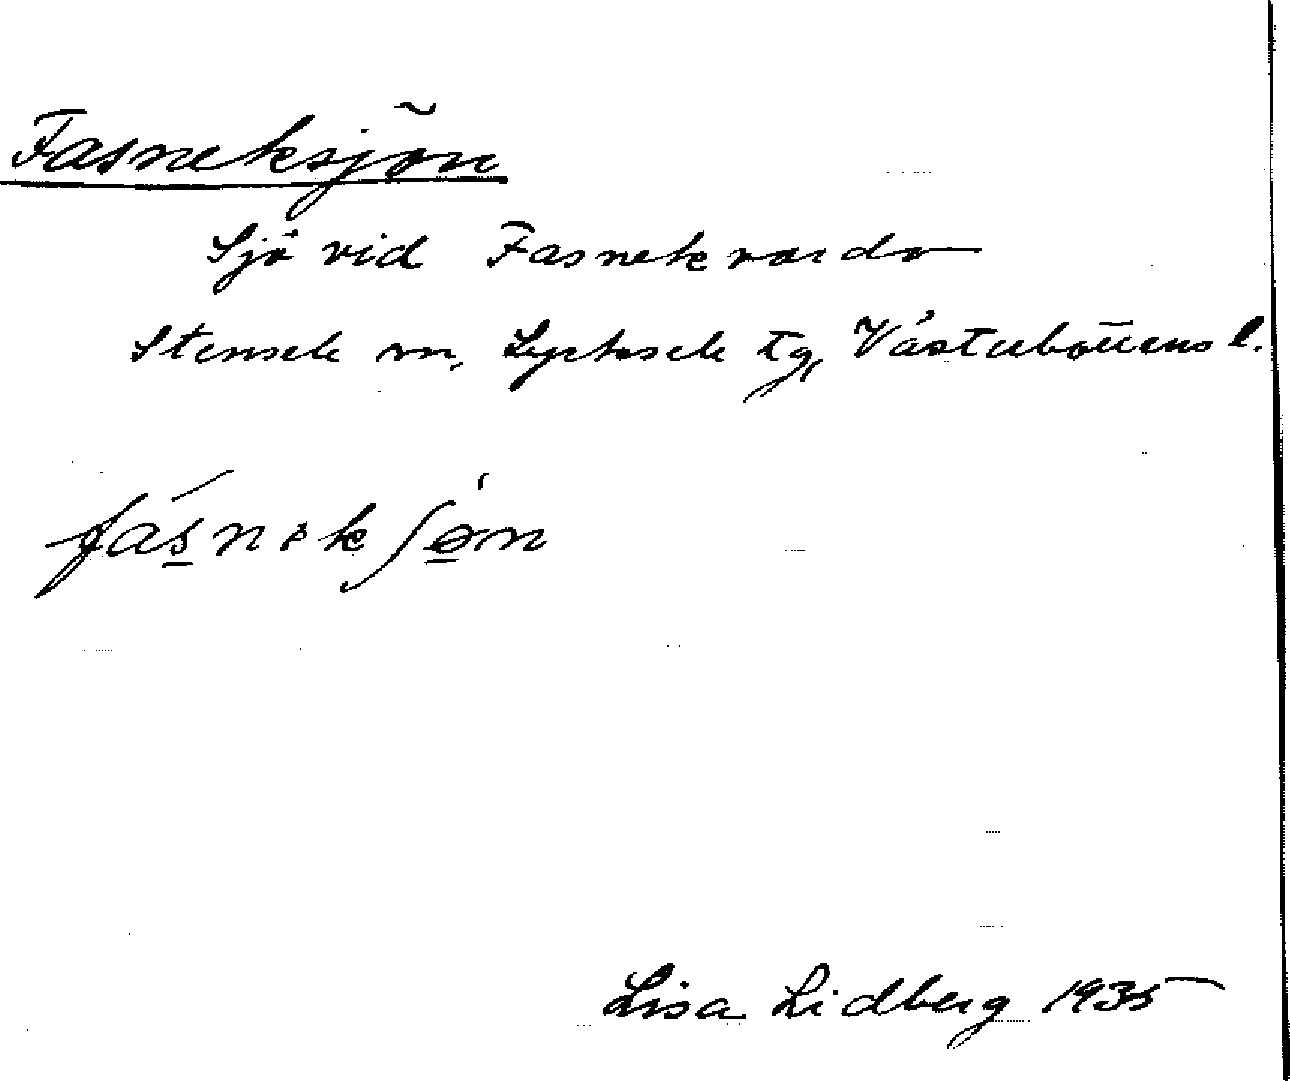 Fasneksjön
Sjö vid Fasnekvardo
Stensele sn, Lycksele tg, Västerbottens l.
fásnekʃøn
Lisa Lidberg 1935